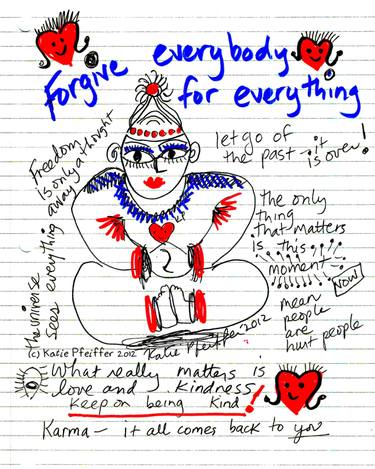 Forgive everybody
for everything
Freedom
is only a thought
away
let go of
the past - it
is over!
the only
thing
that matters
is this
moment
NOW
the universe
sees everything
2
mean
people
are
hurt people
(c) Katie Pfeiffer 2012 Katie Pfeiffer 2012
What really matters is
love and kindness
keep on being kind!
Karma - it all comes back to you